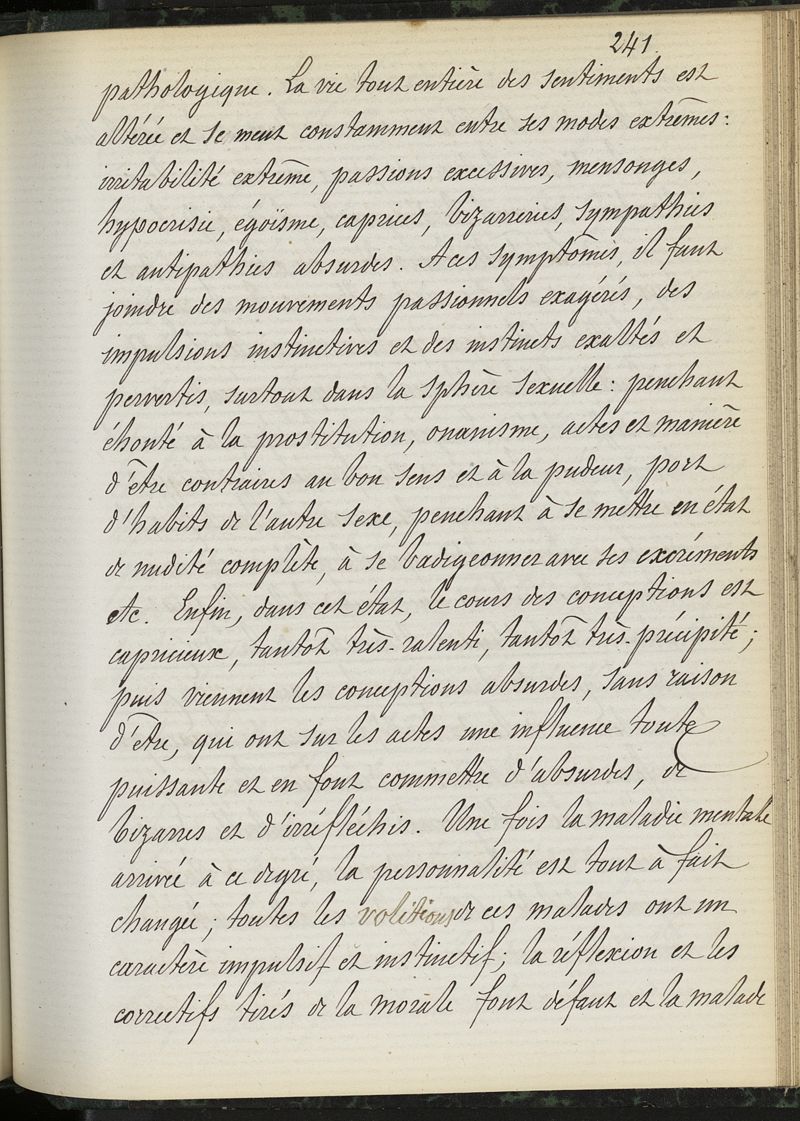 241
pathologique. La vie tout entière des sentiments est
altérée et se meut constamment entre ses modes extrêmes :
irritabilité extrême, passions excessives, mensonges,
hypocrisie, égoïsme, caprices, bizarreries, sympathies
et antipathies absurdes. A ces symptômes, il faut
joindre des mouvements passionnels exagérés, des
impulsions instinctives et des instincts exaltés et
pervertis, surtout dans la sphère sexuelle : penchant
éhonté à la prostitution, onanisme, actes et manière
d'être contraires au bon sens et à la pudeur, port
d'habits de l'autre sexe, penchant à se mettre en état
de nudité complète, à se badigeonner avec ses excréments
etc. Enfin, dans cet état, le cours des conceptions est
capricieux, tantôt très-ralenti, tantôt très-précipité ;
puis viennent les conceptions absurdes, sans raison
d'être, qui ont sur les actes une influence toute
puissante et en font commettre d'absurdes, de
bizarres et d'irréfléchis. Une fois la maladie mentale
arrivée à ce degré, la personnalité est tout à fait
changée ; toutes les volitions de ces malades ont un
caractère impulsif et instinctif ; la réflexion et les
correctifs tirés de la morale font défaut et la malade